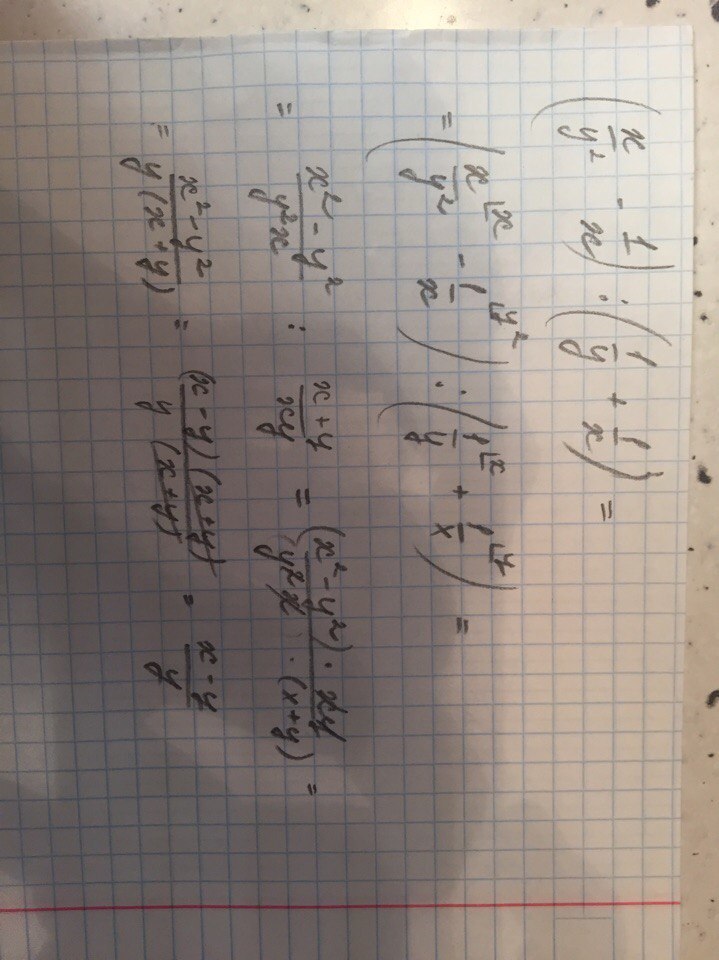 (x/y² - 1/x) : (1/y + 1/x) =
= (x⌊x/y² - 1⌊y²/x) : (1⌊x/y + 1⌊y/x) =
= x² - y²/y²x : x + y/xy = (x² - y²) · xy/y²x · (x + y) =
= x² - y²/y(x + y) = (x - y)(x + y)/y(x + y) = x - y/y